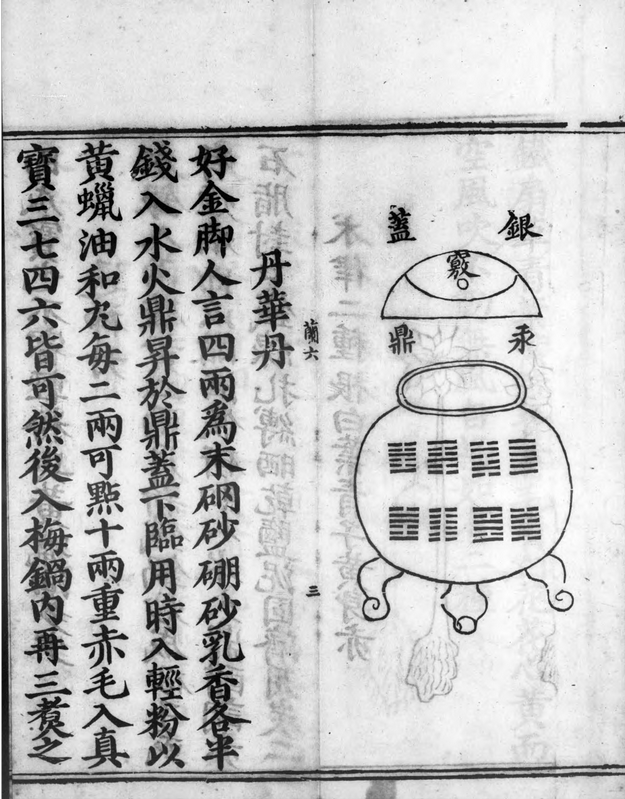 銀蓋
竅
汞鼎
蘭六
三
丹華丹
好金脚人言四兩為末硇砂硼砂乳香各半
錢入水火鼎昇於鼎蓋下臨用時入輕粉以
黃蠟油和丸每二兩可點十兩重赤毛入真
寶三七四六皆可然後入梅鍋內再三煮之